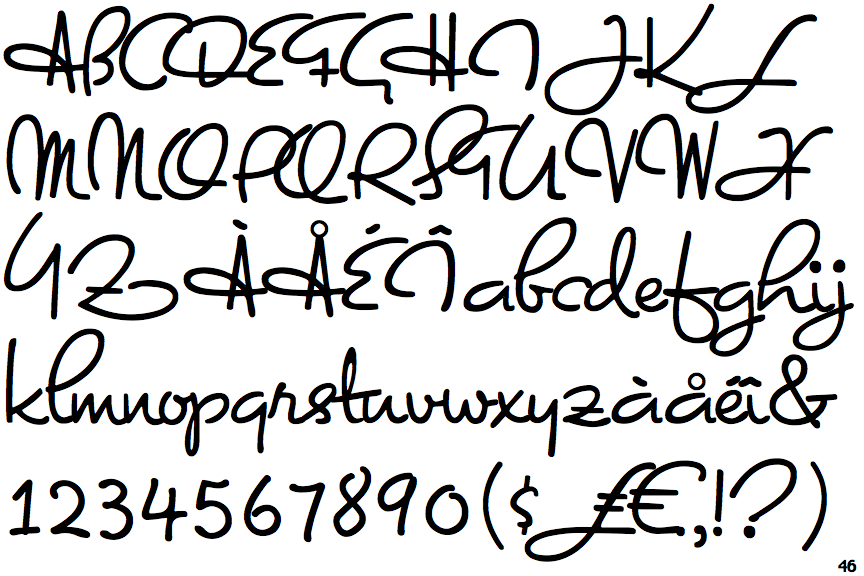 ABCDEFGHIJKL
MNOPQRSTUVWX
YZÀÅÉÎabcdefghij
klmnopqrstuvwxyzàåéî&
1234567890($£€,!?)
46